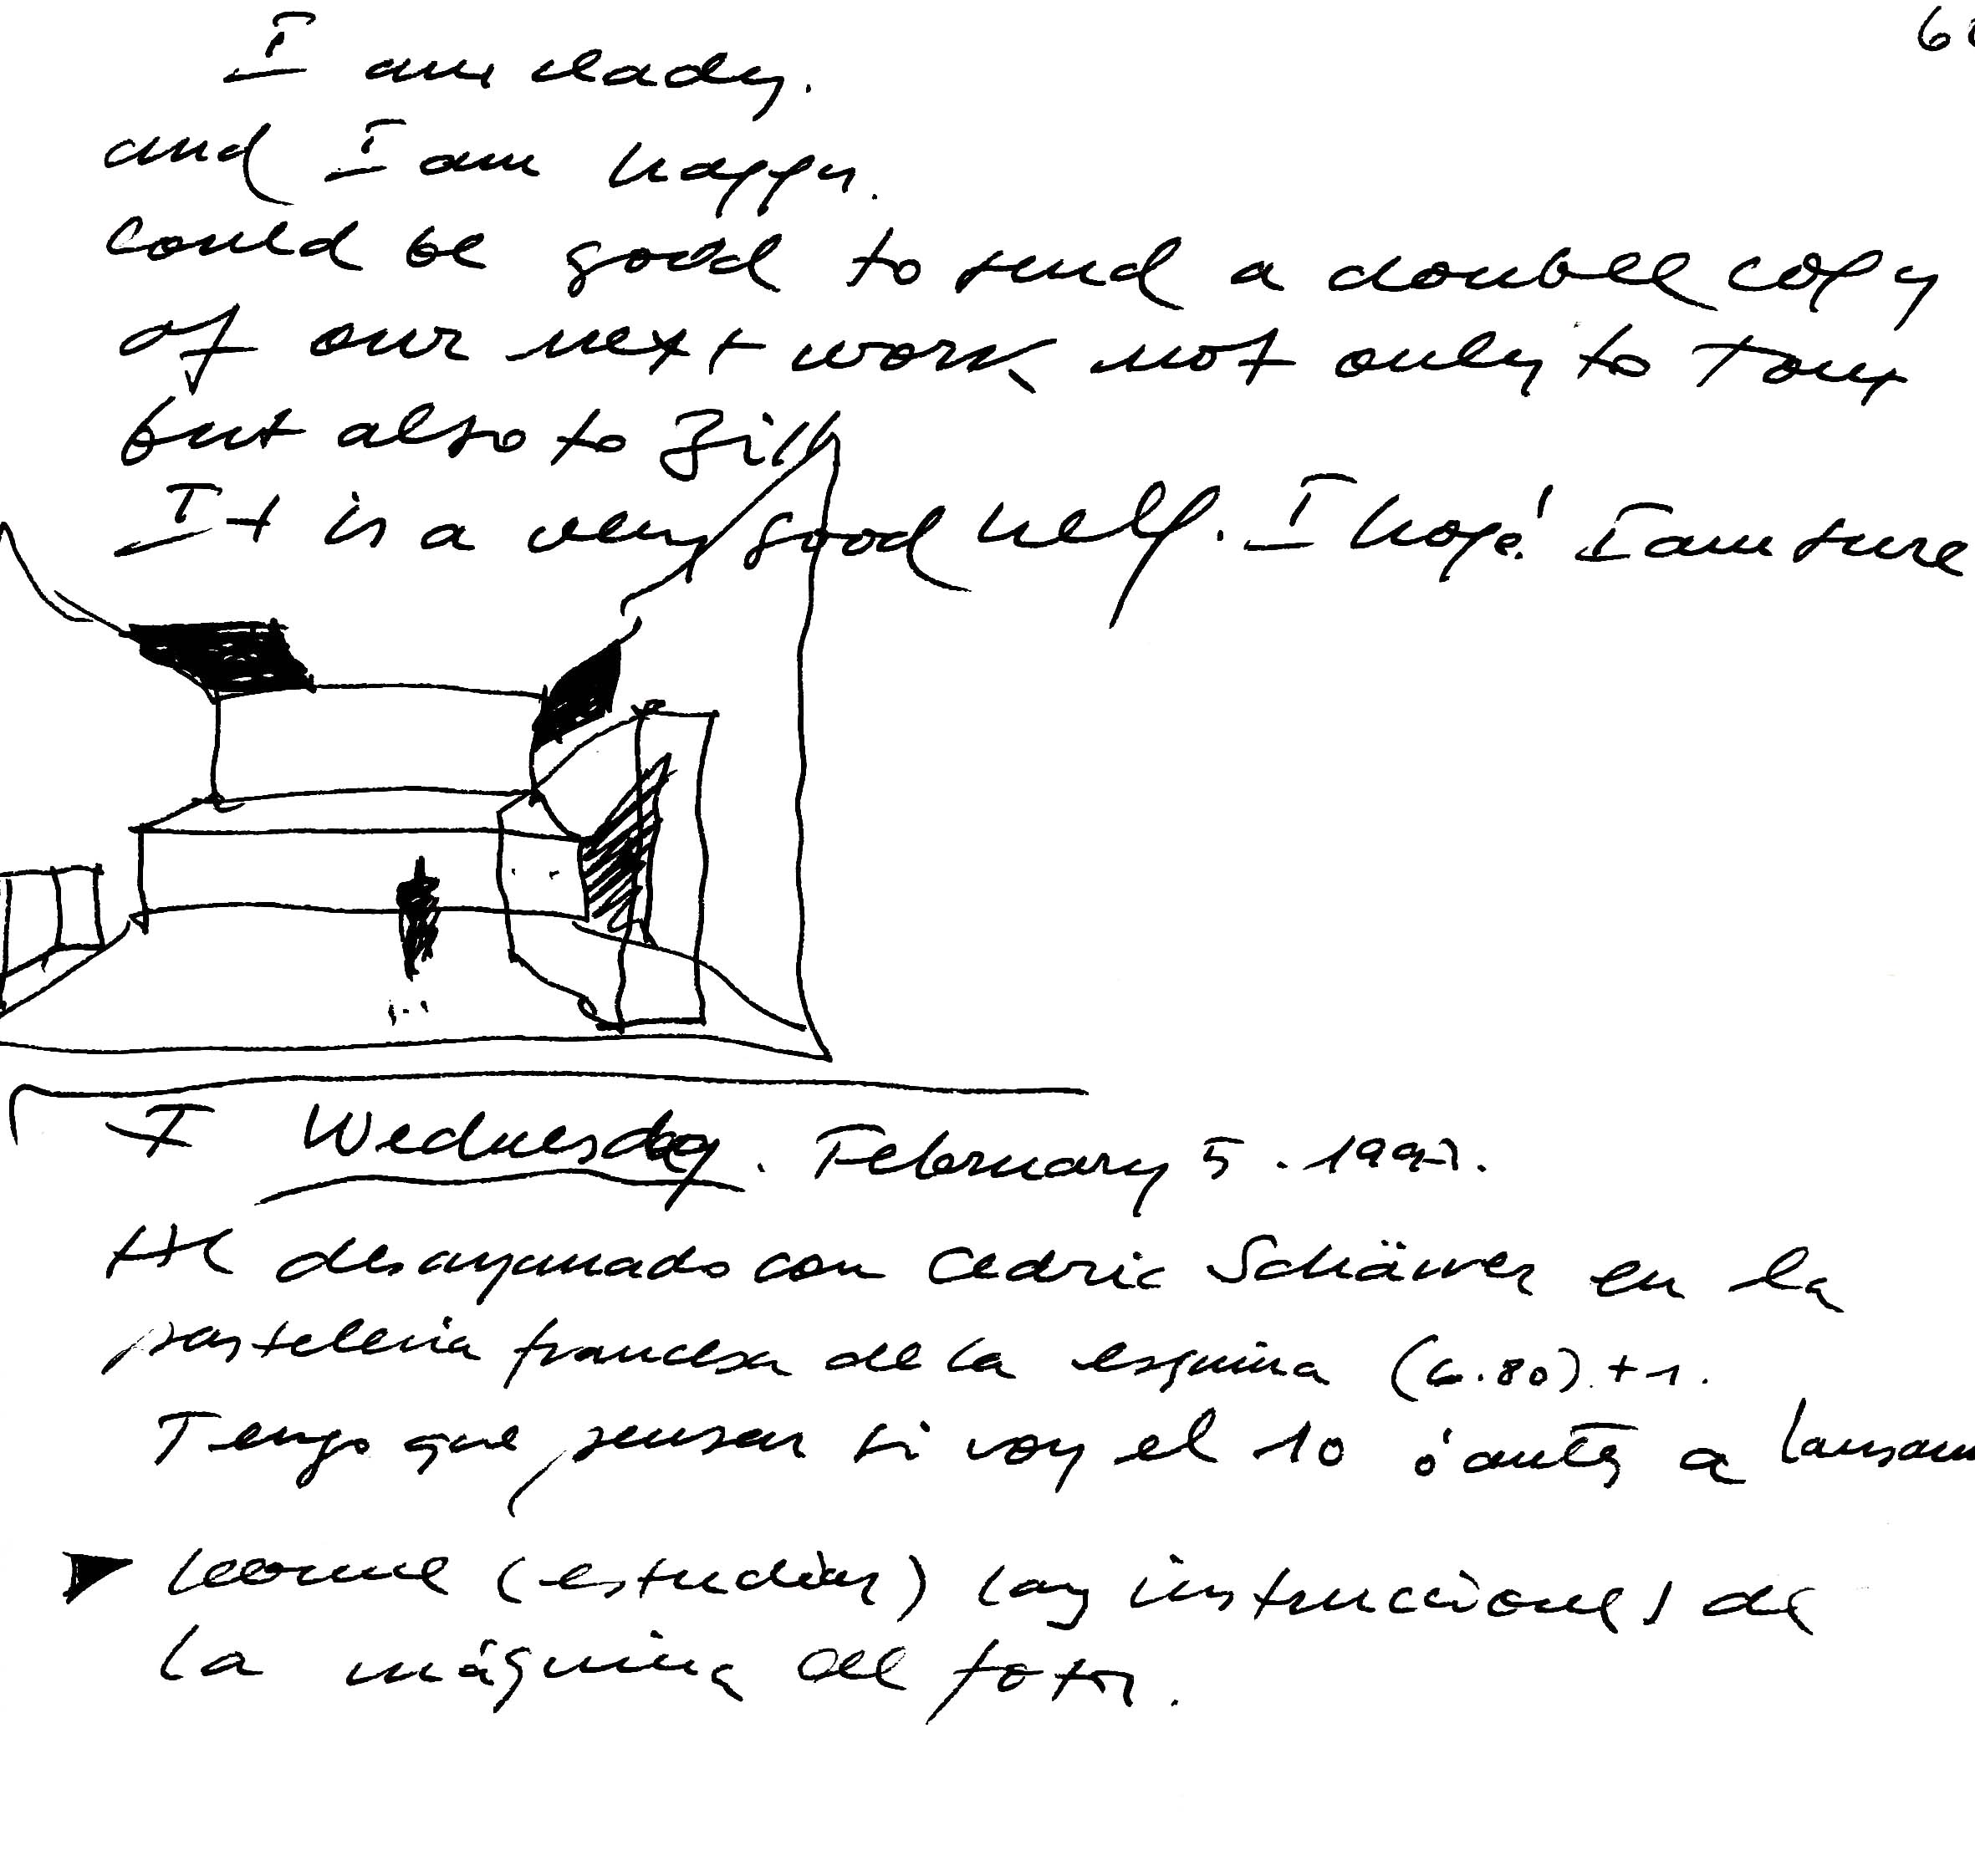 I am ready.
and I am happy.
could be good to send a double copy
of our next work not only to Tony
but also to Bill
It is a very good help. I hope! I am sure
I Wednesday. February 5. 1997.
He desayunado con Cedric en la
pasteleria francesa de la esquina (6.80) + 1.
Tengo que pensar si voy el 10 ó antes a
leerme (estudiar) las instrucciones de
la máquina de fotos.